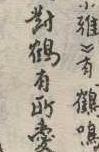 小雅》有鶴鳴
對鶴有所愛